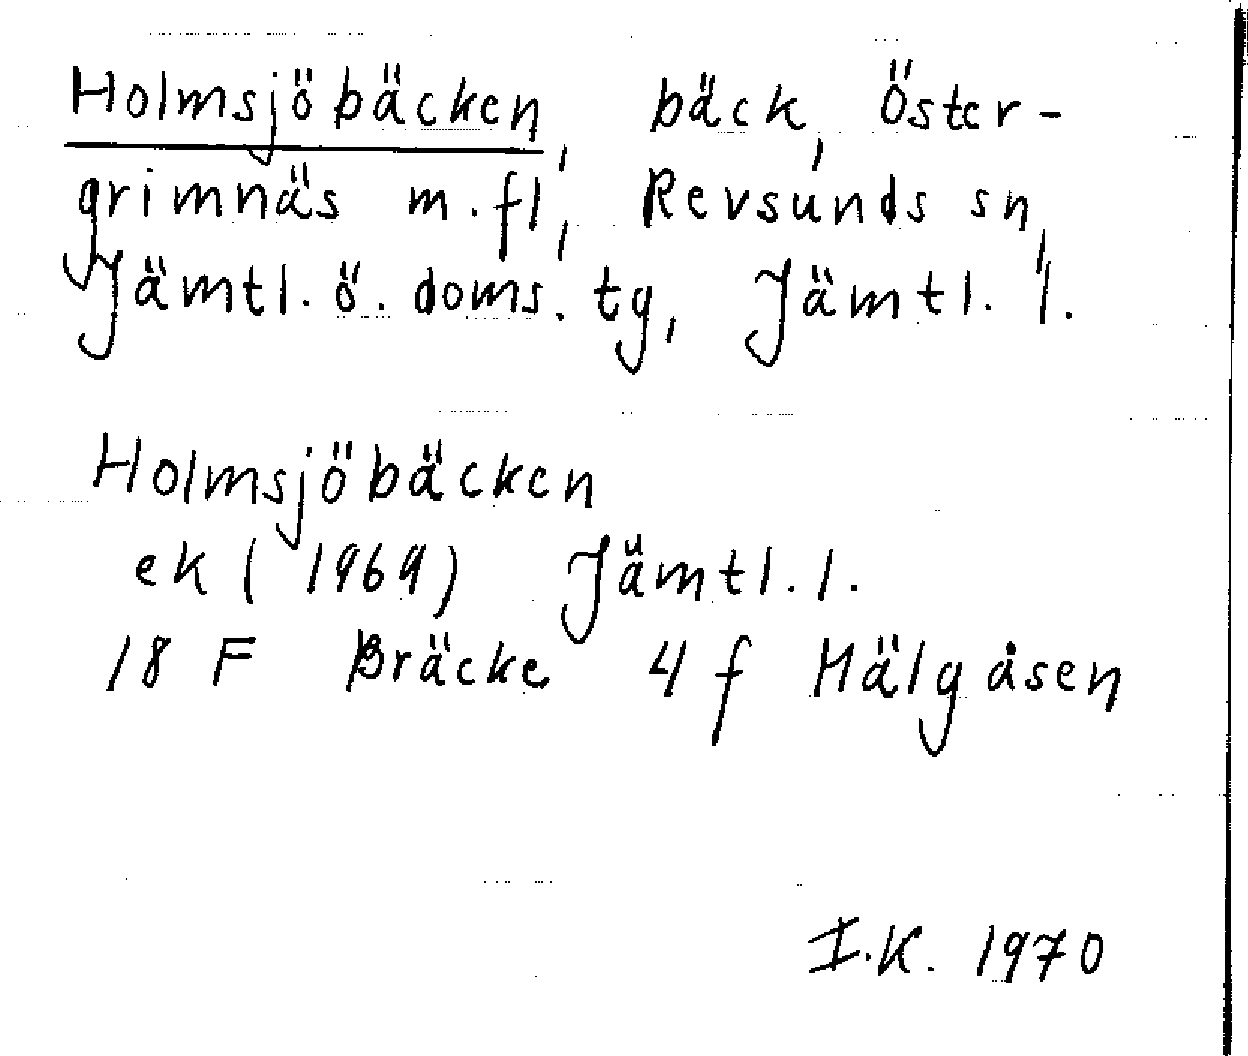 Holmsjöbäcken, bäck, Öster-
grimnäs m.fl., Revsunds sn,
Jämtl. ö. doms. tg, Jämtl. l.
Holmsjöbäcken
ek (1969) Jämtl. l.
18 F Bräcke 4 f Hälgåsen
I.K. 1970